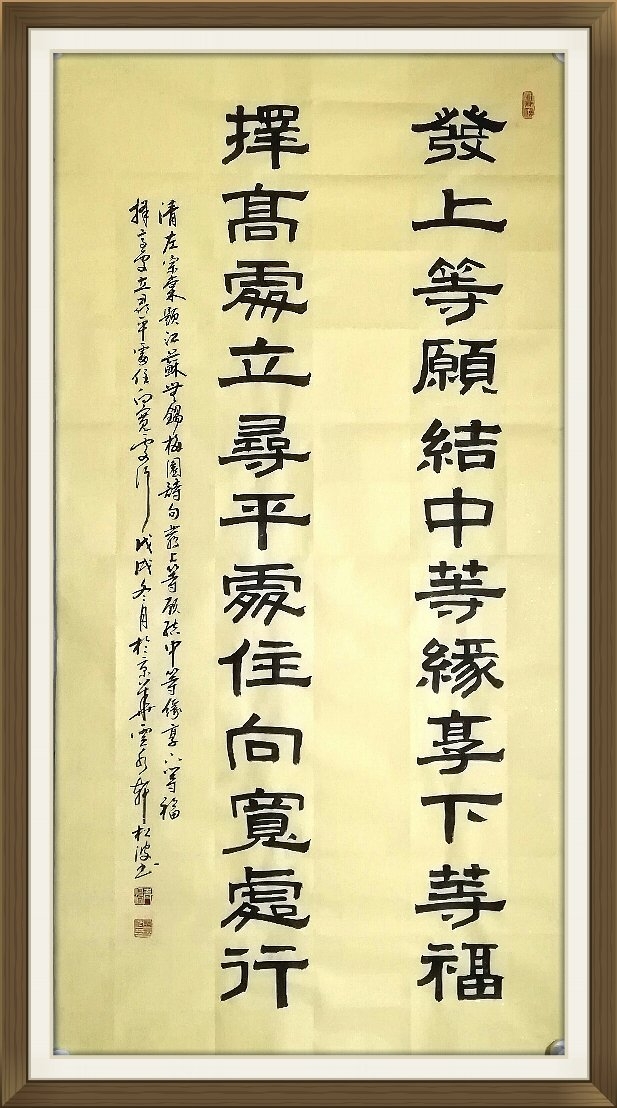 發上等願結中等緣享下等福
擇高處立尋平處住向寬處行
清左宗棠題江蘇無錫梅園詩句發上等願結中等緣享下等福
擇高處立尋平處住向寬處行戊戌冬月於京華雲水軒松波書